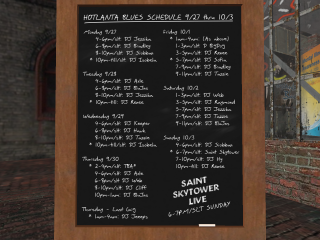 HOTLANTA BLUES SCHEDULE 9/27 thru 10/3
Monday 9/27
4-6pm/slt: DJ Jezzka
6-8pm/slt: DJ Bradley
8-10pm/slt: DJ Siobban
* 10pm-All/slt: DJ Isabeln
Tuesday 9/28
4-6pm/slt: DJ
6-8pm/slt: DJ
8-10pm/slt: DJ Jezzka
* 10pm-All: DJ Renee
Wednesday 9/29
4-6pm/slt: DJ Keeper
6-8pm/slt: DJ Hawk
8-10pm/slt: DJ Tazzie
* 10pm-All/slt: DJ Isabeln
Thursday 9/30
* 2-4pm: TBA*
4-6pm/slt: DJ
6-8pm/slt: DJ Web
8-10pm/slt: DJ Cliff
10pm-1am: DJ
Thursday - Last Call
* 1am-4am: DJ
Friday 10/1
* 1am-4am: (As above)
1-3pm/slt: D
3-5pm/slt: DJ Renee
* 5-7pm/slt: DJ
7-9pm/slt: DJ Bradley
9-11pm/slt: DJ Tazzie
Saturday 10/2
1-3pm/slt: DJ Web
3-5pm/slt: DJ Raymond
5-7pm/slt: DJ Jezzka
7-9pm/slt: DJ Tazzie
9-11pm/slt: DJ
Sunday 10/3
4-6pm/slt: DJ Siobban
* 6-7pm/slt: Saint Skytower
7-10pm/slt: DJ
10pm/slt: DJ Renee
SAINT
SKYTOWER
LIVE
6-7PM/SLT SUNDAY